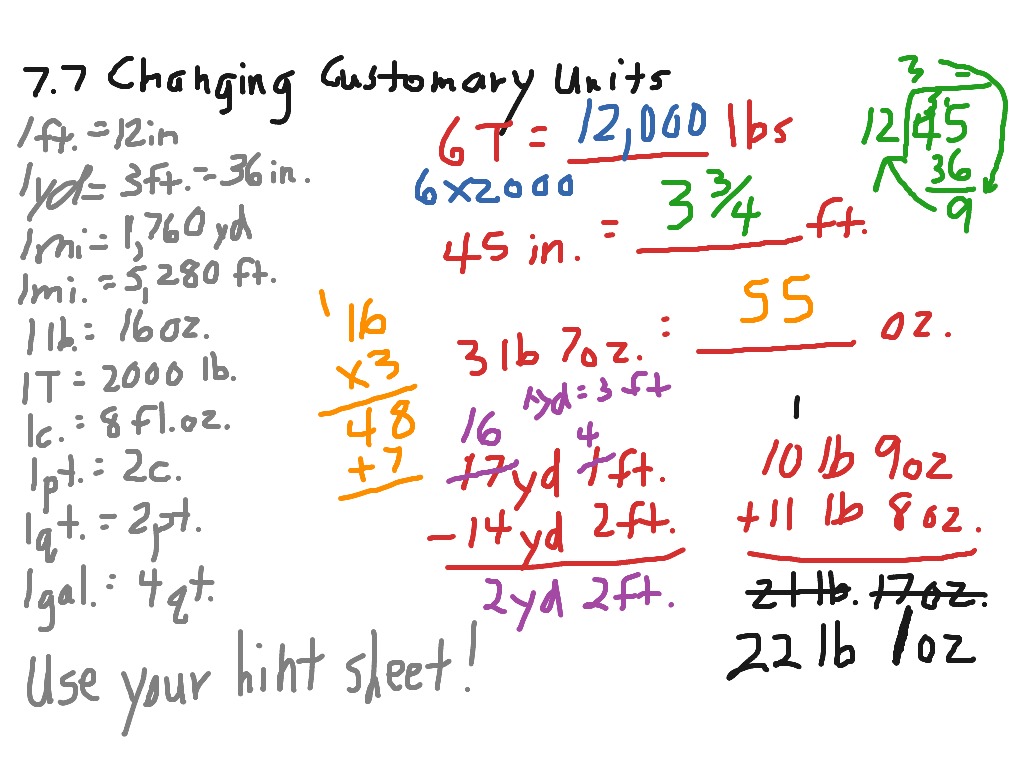 7.7 Changing Customary Units
1ft. = 12in
1yd = 3ft. = 36in.
1mi = 1,760yd
1mi. = 5,280 ft.
1lb. = 16oz.
1T = 2000 lb.
1c. = 8fl.oz.
1pt. = 2c.
1qt. = 2pt.
1gal. = 4qt.
Use your hiht sheet!
6T = 12,000 lbs
6x2000
45 in. = 3 3/4 ft.
3
12 45
36
9
3 lb 7oz. = 55 oz.
1
16
x3
48
+7
1yd = 3 ft
16 4
17yd 1ft.
-14yd 2ft.
2yd 2ft.
1
10 lb 9oz
+11 lb 8oz.
21 lb. 17oz.
22 lb 1oz